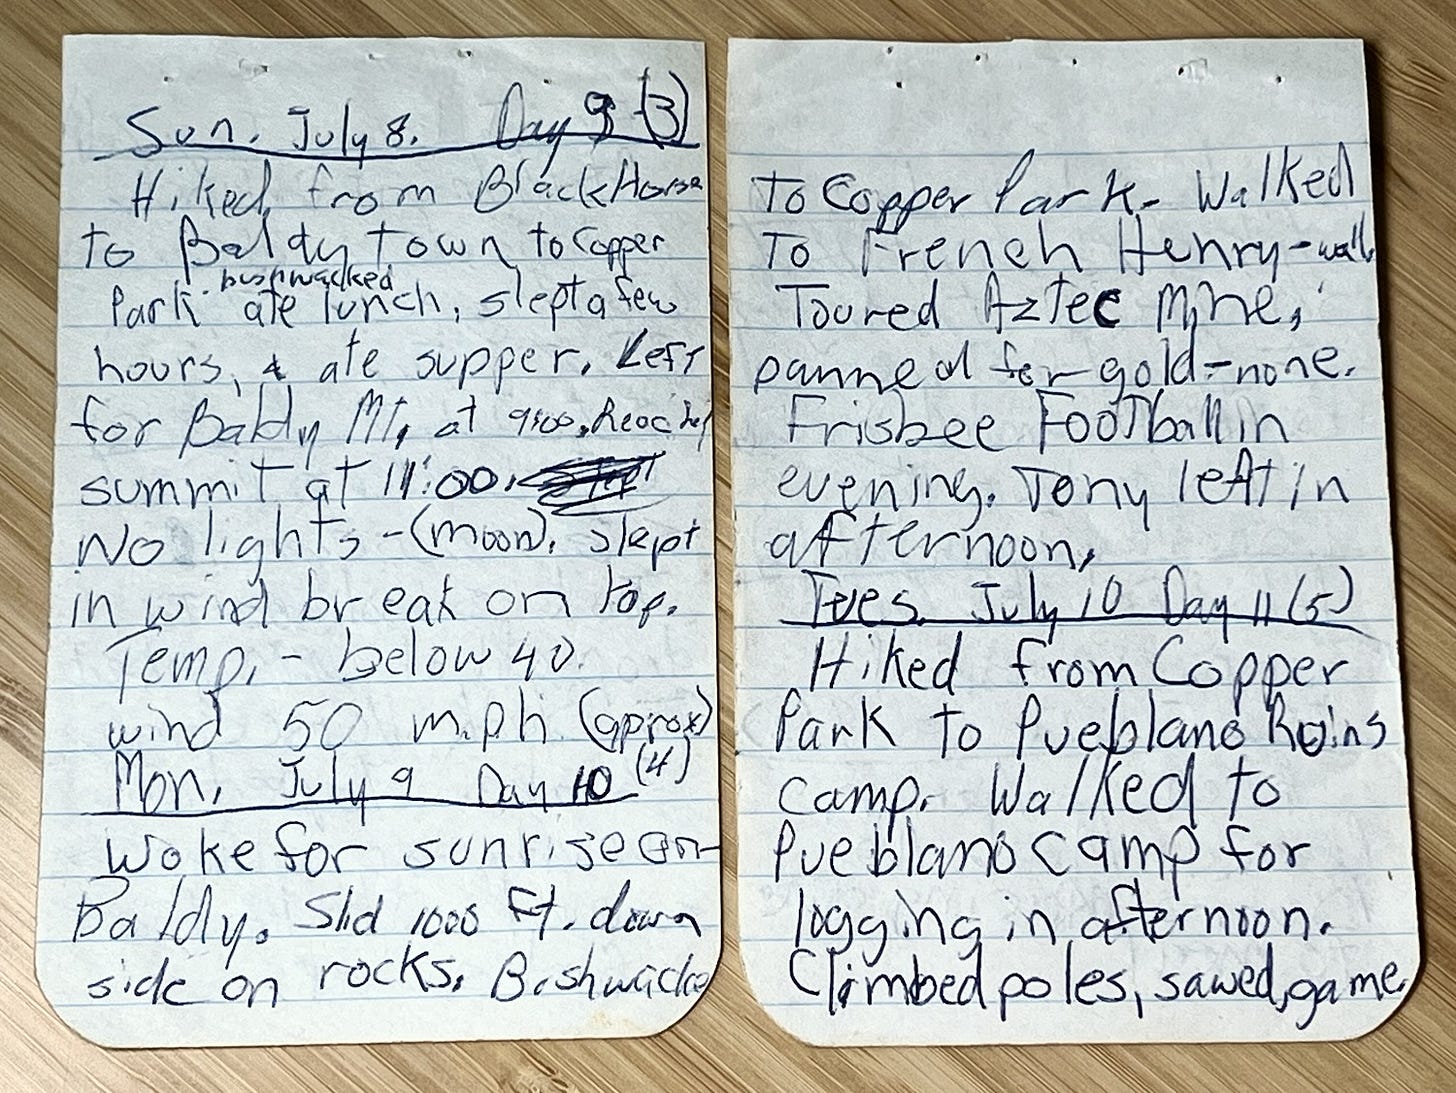 Sun. July 8. Day 9 (3)
Hiked from Black Horse
to Baldy Town to Copper
bushwacked
Park ate lunch, slept a few
hours, & ate supper. Left
for Baldy Mt, at 9:00. Reached
summit at 11:00.
No lights - (moon). slept
in wind break on top.
Temp. - below 40.
wind 50 m.p.h. (aprox)
Mon. July 9 Day 10 (4)
Woke for sunrise on
Baldy. Slid 1000 ft. down
side on rocks. Bushwacke
To Copper Park - Walked
To French Henry - walk
Toured Aztec Mine,
panned for gold - none.
Frisbee Football in
evening. Tony left in
afternoon,
Tues. July 10 Day 11 (5)
Hiked from Copper
Park to Pueblano Ruins
camp. Walked to
Pueblano camp for
logging in afternoon.
Climbed poles, sawed, game.